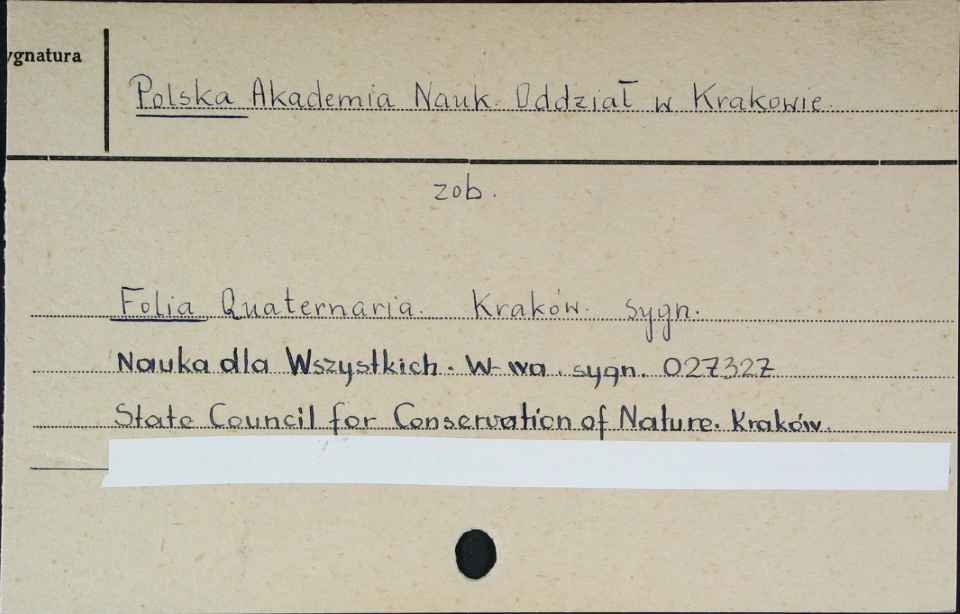 ygnatura
Polska Akademia Nauk. Oddział w Krakowie.
zob.
Folia Quaternaria. Kraków. sygn.
Nauka dla Wszystkich. W-wa. sygn. 027327
State Council for Conservation of Nature. Kraków.